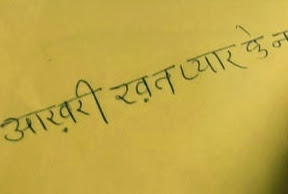 आख़री ख़त प्यार के न